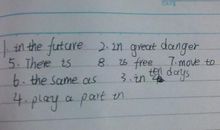 1. in the future 2. in great danger
5. There is 8. is free 7. move to
6. the same as 3. in ten days
4. play a part in